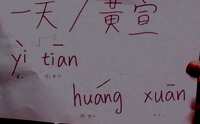 一天/黄宣
yì tiān
huáng xuān